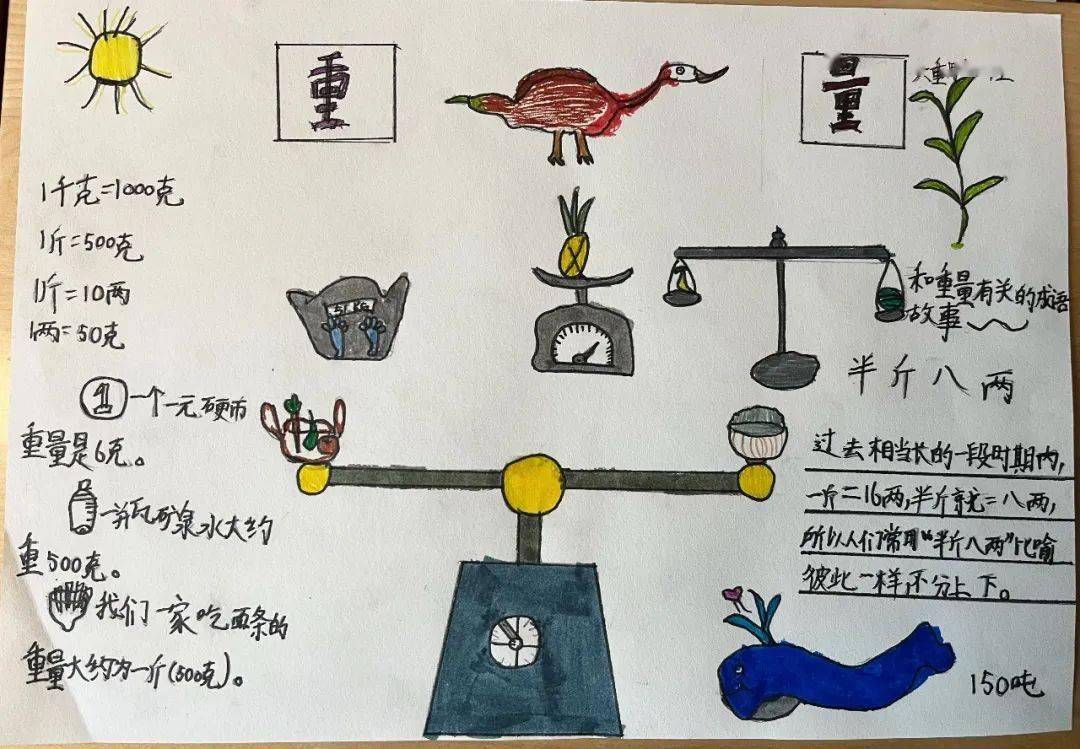 重
量
1千克=1000克
1斤=500克
1斤=10两
1两=50克
51KG
和重量有关的成语
故事
半斤八两
1
一个一元硬币
重量是6克。
一瓶矿泉水大约
重500克。
我们一家吃面条的
重量大约为一斤(500克)。
过去相当长的一段时期内,
一斤=16两,半斤就=八两,
所以人们常用“半斤八两”比喻
彼此一样,不分上下。
150吨